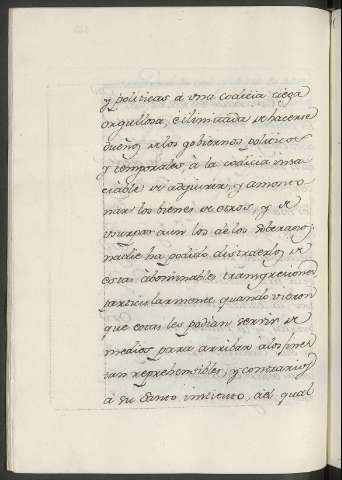 y politicas à una codicia ciega
orgullosa, è ilimitada de hacerse
dueños de los gobiernos politicos
y temporales à la codicia insa
ciable de adquirir, y amonto
nar los bienes de otros, y de
usurpar aun los de los Soberanos;
nadie ha podido distraerlos de
estas abominables transgreciones
particularmente quando vieron
que estas les podian servir de
medios para arribar à los fines
tan reprehensibles, y contrarios
à su Santo instituto, del qual